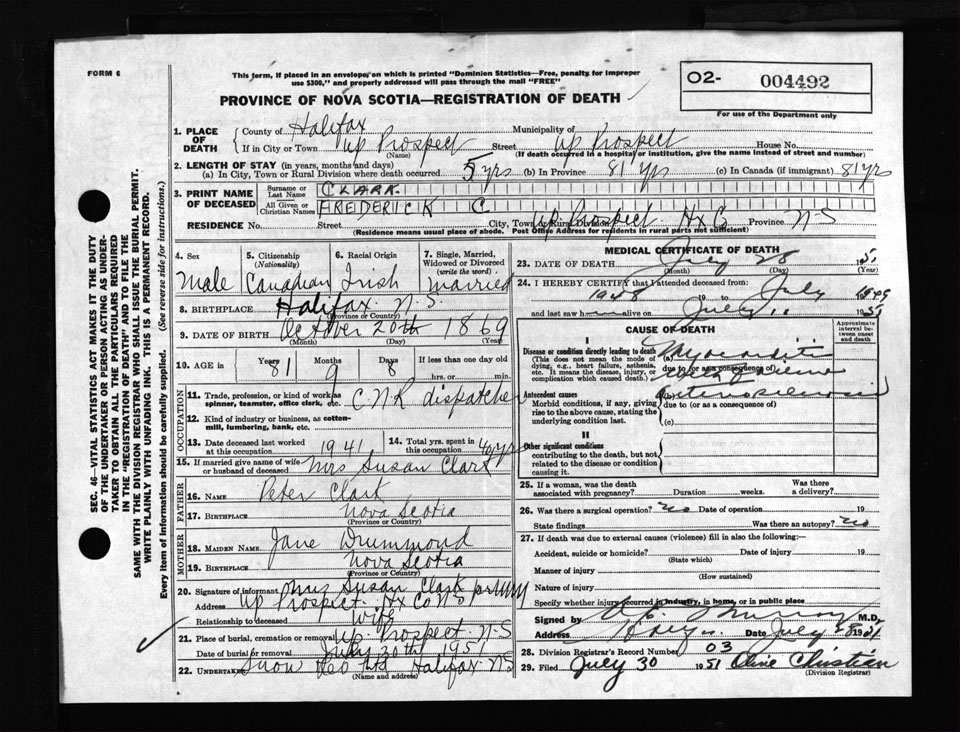 FORM 6
This form, if placed in an envelope, on which is printed "Dominion Statistics—Free, penalty for improper
use $300," and properly addressed will pass through the mail "FREE"
O2- 004492
For use of the Department only
PROVINCE OF NOVA SCOTIA—REGISTRATION OF DEATH
1. PLACE OF DEATH
County of Halifax Municipality of
If in City or Town Up Prospect Street Up Prospect House No.
(Name) (If death occurred in a hospital or institution, give the name instead of street and number)
2. LENGTH OF STAY (in years, months and days)
(a) In City, Town or Rural Division where death occurred 5 yrs (b) In Province 81 yrs (c) In Canada (if immigrant) 81 yrs
3. PRINT NAME OF DECEASED
Surname or Last Name CLARK
All Given or Christian Names FREDERICK C
RESIDENCE No. Street City, Town or Rural Division Up Prospect Hx Co Province N-S
(Residence means usual place of abode. Post Office Address for residents in rural parts not sufficient)
4. Sex 5. Citizenship (Nationality) 6. Racial Origin 7. Single, Married, Widowed or Divorced (write the word)
Male Canadian Irish Married
8. BIRTHPLACE Halifax N.S.
(Province or Country)
9. DATE OF BIRTH October 20th 1869
(Month) (Day) (Year)
10. AGE in Years 81 Months 9 Days 8 If less than one day old
hrs. or min.
OCCUPATION
11. Trade, profession, or kind of work as spinner, teamster, office clerk, etc. CNR dispatcher
12. Kind of industry or business, as cotton-mill, lumbering, bank, etc.
13. Date deceased last worked at this occupation 1941 14. Total yrs. spent in this occupation 40 yrs
15. If married give name of wife or husband of deceased Mrs Susan Clark
FATHER
16. NAME Peter Clark
17. BIRTHPLACE Nova Scotia
(Province or Country)
MOTHER
18. MAIDEN NAME Jane Drummond
19. BIRTHPLACE Nova Scotia
(Province or Country)
20. Signature of informant Mrs Susan Clark per
Address Up Prospect Hx Co N S
Relationship to deceased Wife
21. Place of burial, cremation or removal Up Prospect N-S
Date of burial or removal July 30th 1951
22. UNDERTAKER Snow & Co Halifax N-S
(Name and address)
MEDICAL CERTIFICATE OF DEATH
23. DATE OF DEATH July 28 1951
(Month) (Day) (Year)
24. I HEREBY CERTIFY that I attended deceased from:
1948 19 to July 19
and last saw h alive on July 11 1951
CAUSE OF DEATH
Approximate interval between onset and death
I
Disease or condition directly leading to death Myocarditis
(This does not mean the mode of dying, e.g., heart failure, asthenia, etc. It means the disease, injury, or complication which caused death.)
due to (or as a consequence of)
Antecedent causes
Morbid conditions, if any, giving rise to the above cause, stating the underlying condition last.
(b) arteriosclerosis
due to (or as a consequence of)
(c)
II
Other significant conditions
contributing to the death, but not related to the disease or condition causing it.
25. If a woman, was the death associated with pregnancy? Duration weeks. Was there a delivery?
26. Was there a surgical operation? no Date of operation 19
State findings Was there an autopsy? no
27. If death was due to external causes (violence) fill in also the following:—
Accident, suicide or homicide? Date of injury 19
(State which)
Manner of injury
(How sustained)
Nature of injury
Specify whether injury occurred in industry, in home, or in public place
Signed by Murray M.D.
Address Hfx Date July 28 1951
28. Division Registrar's Record Number 03
29. Filed July 30 1951 Olive Christian
(Division Registrar)
SEC. 46—VITAL STATISTICS ACT MAKES IT THE DUTY
OF THE UNDERTAKER OR PERSON ACTING AS UNDER-
TAKER TO OBTAIN ALL THE PARTICULARS REQUIRED
IN THE "REGISTRATION OF DEATH" AND TO FILE THE
SAME WITH THE DIVISION REGISTRAR WHO SHALL ISSUE THE BURIAL PERMIT.
WRITE PLAINLY WITH UNFADING INK. THIS IS A PERMANENT RECORD.
Every item of information should be carefully supplied. (See reverse side for instructions.)